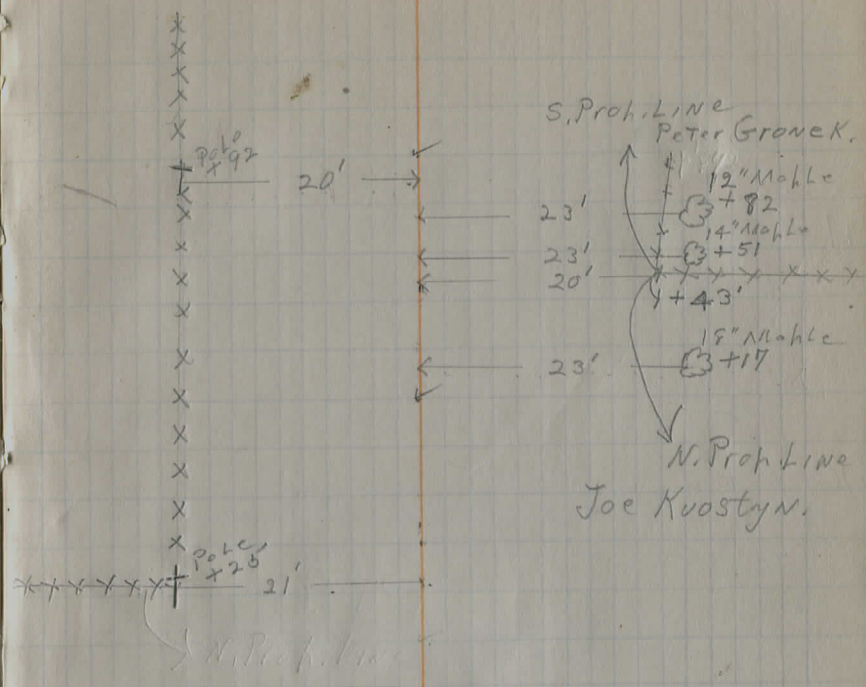 S. Prop. Line
Peter Gronek.
Pole
+92
20'
12" Maple
+82
23'
14" Maple
+51
23'
20'
+43'
18" Maple
+17
23'
N. Prop. Line
Joe Kuostyn.
Pole
+25'
21'
N. Prop. Line